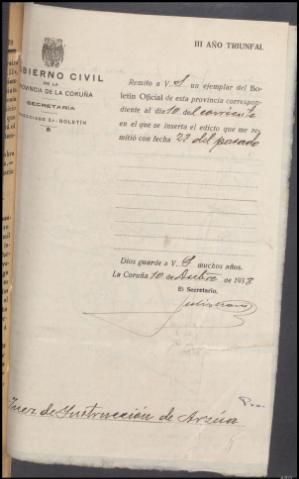 III AÑO TRIUNFAL
GOBIERNO CIVIL
DE LA
PROVINCIA DE LA CORUÑA
SECRETARÍA
NEGOCIADO 3.º-BOLETÍN
Remito a V. S. un ejemplar del Bo-
letín Oficial de esta provincia correspon-
diente al día 10 del corriente
en el que se inserta el edicto que me re-
mitió con fecha 22 del pasado
Dios guarde a V. S. muchos años.
La Coruña 10 de de 1938
El Secretario,
Juez de Instrucción de Arzúa